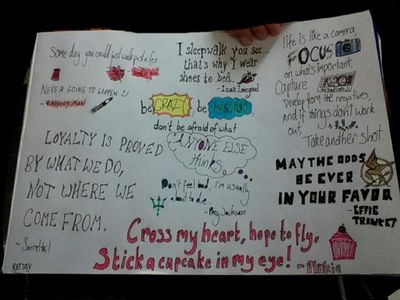 Some day you could just walk past a fez.
NEVER GOING TO HAPPEN
I sleepwalk you see...
that's why I wear
shoes to bed.
- Luna Lovegood
life is like a camera
FOCUS
on what's important,
Capture
Develop from the negatives,
and if things don't work
out,
Take another shot.
be CRAZY, be
don't be afraid of what
ANYONE ELSE
thinks.
LOYALTY IS PROVED
BY WHAT WE DO,
NOT WHERE WE
COME FROM.
Don't feel bad, I'm usually
about to die.
- Percy Jackson
MAY THE ODDS
BE EVER
IN YOUR FAVOR
- EFFIE
TRINKET
Cross my heart, hope to fly,
Stick a cupcake in my eye!
- Pinkie